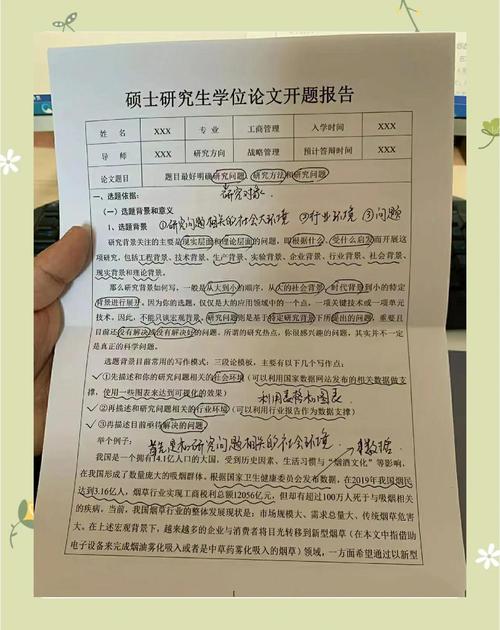 硕士研究生学位论文开题报告
姓 名 XXX 专 业 工商管理 入学时间 XXX
导 师 XXX 研究方向 战略管理 预计答辩时间 XXX
论文题目 题目最好明确研究问题、研究方法和研究问题
研究对象
一、选题依据:
(一)选题背景和意义
1、选题背景 ①研究问题相关的社会大环境 ②行业环境 ③问题
研究背景关注的主要是现实层面和理论层面的问题,即根据什么、受什么启发而开展这
项研究,包括工程背景、技术背景、生产背景、实验背景、企业背景、行业背景、社会背景、
现实背景和理论背景。
那么研究背景如何写,一般是从大到小的顺序,从大的社会背景、时代背景到小的特定
背景进行展开,因为你的选题,仅仅是大的应用领域中的一个点,一项关键技术或一项单元
技术,因此,不能只谈宏观背景,研究问题则是基于特定研究背景下所提出的问题,重要且
目前还没有解决或没有解决好的问题。所谓的研究热点,你很感兴趣的问题,其实并不一定
是真正的科学问题。
选题背景目前常用的写作模式:三段论模板,主要有以下几个写作点:
①先描述和你的研究问题相关的社会环境(可以利用国家数据网站发布的相关数据做支
撑,使用一些图表来达到可视化的效果) 利用表格和图表
②再描述和研究问题相关的行业环境(可以利用行业报告作为数据支撑)
③再描述目前亟待解决的问题。
举个例子: 首先是和研究问题相关的社会环境 数据
我国是一个拥有14.1亿人口的大国,受到历史因素、生活习惯与“烟酒文化”等影响,
在我国形成了数量庞大的吸烟群体。根据国家卫生健康委员会发布数据,在2019年我国烟民
达到3.16亿人,烟草行业实现工商税利总额12056亿元,但却有超过100万人死于与吸烟相关
的疾病,当前,我国烟草行业的整体发展现状是:市场规模大、需求总量大、传统烟草危害
大。在上述宏观背景下,越来越多的企业与消费者将目光转移到新型烟草(在本文中指借助
电子设备来完成烟油雾化吸入或者是中草药雾化吸入的烟草)领域,一方面希望通过以新型